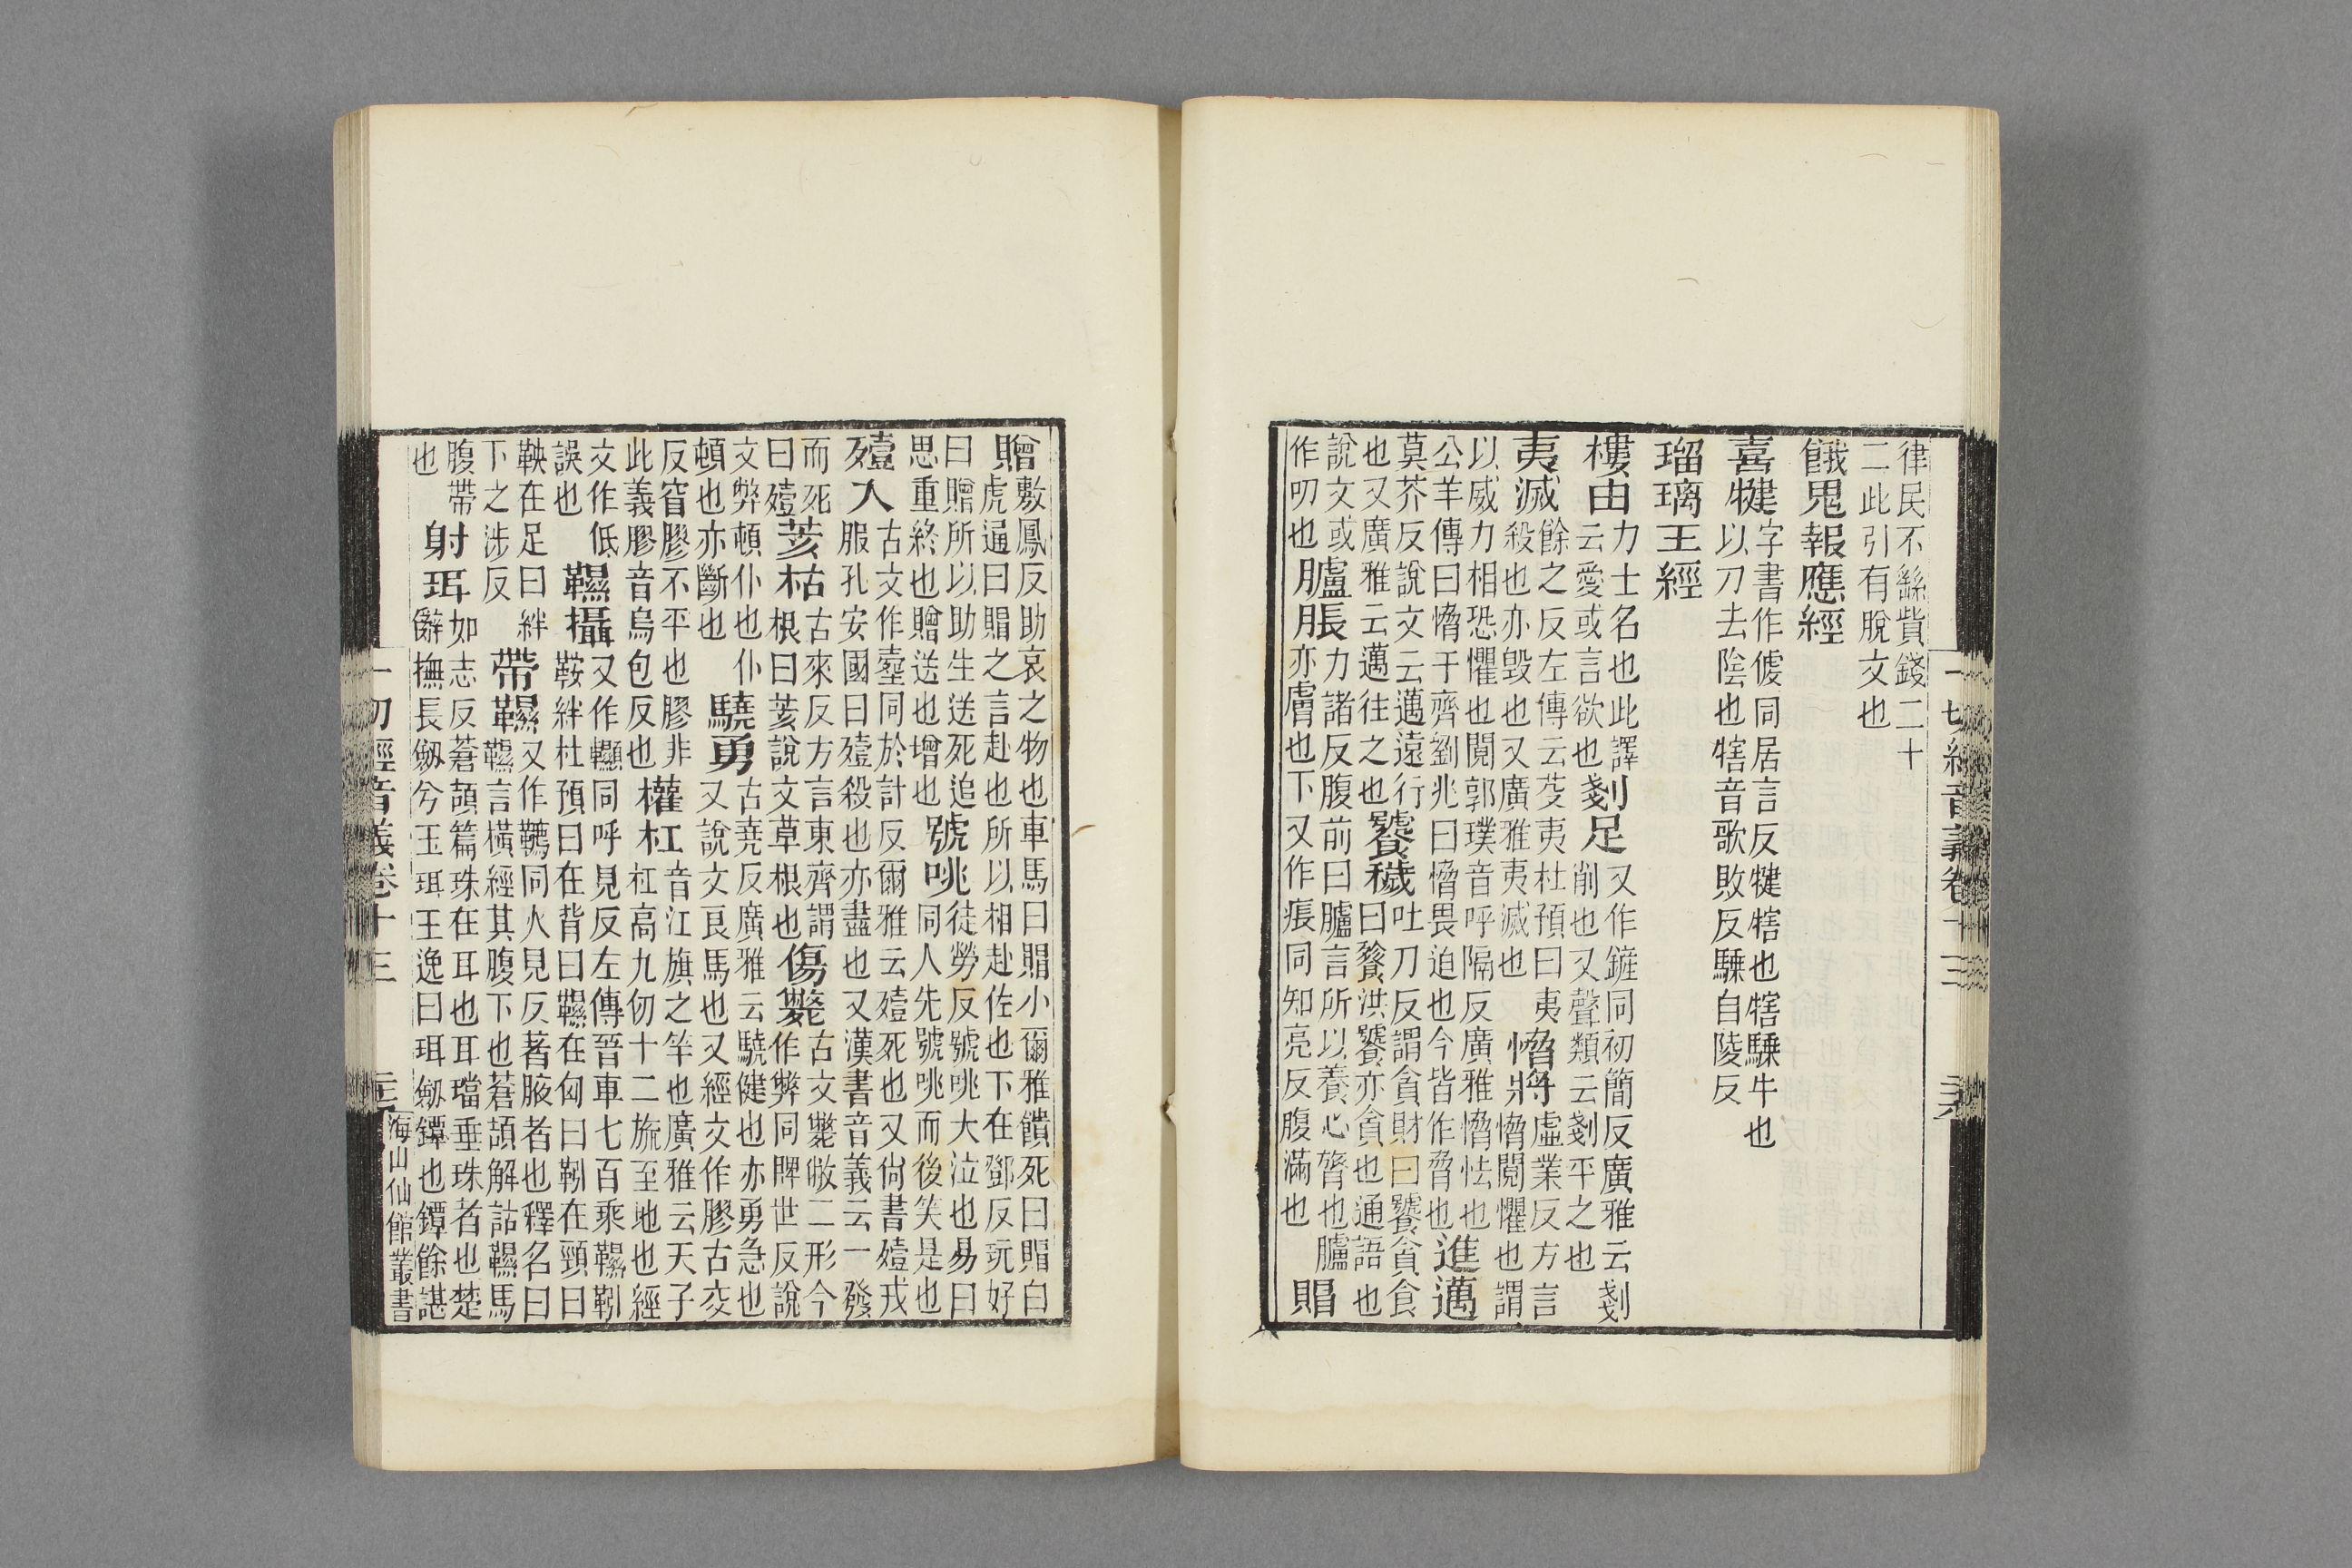 律民不繇貲錢二十
二此引有脫文也
餓鬼報應經
喜犍字書作㨿同居言反犍犗也犗騬牛也
以刀去陰也犗音歌敗反騬自陵反
瑠璃王經
樓由力士名也此譯
云愛或言欲也
剗足又作鏟同初簡反廣雅云剗
削也又聲類云剗平之也
夷滅餘之反左傳云芟夷杜預曰夷
殺也亦毀也又廣雅夷滅也
愶將虛業反方言
愶閱懼也謂
以威力相恐懼也閱郭璞音呼隔反廣雅愶怯也
公羊傳曰愶于齊劉兆曰愶畏迫也今皆作脅也
進邁
莫芥反說文云邁遠行
也又廣雅云邁往之也
饕穢吐刀反謂貪財曰饕貪食
曰餮洪饕亦貪也通語也
說文或
作叨也
臚脹力諸反腹前曰臚言所以養心膂也臚
亦膚也下又作痮同知亮反腹滿也
賵
一切經音義卷十三
贈敷鳳反助哀之物也車馬曰賵小爾雅饋死曰賵白
虎通曰賵之言赴也所以相赴佐也下在鄧反玩好
曰贈所以助生送死追
思重終也贈送也增也
號咷徒勞反號咷大泣也易曰
同人先號咷而後笑是也
殪人古文作同於計反爾雅云殪死也又尙書殪戎
服孔安國曰殪殺也亦盡也又漢書音義云一發
而死
曰殪
荄枯古來反方言東齊謂
根曰荄說文草根也
傷斃古文斃敝二形今
作弊同脾世反說
文弊頓仆也仆
頓也亦斷也
驍勇古堯反廣雅云驍健也亦勇急也
又說文良馬也又經文作膠古交
反窅膠不平也膠非
此義膠音烏包反也
權杠音江旗之竿也廣雅云天子
杠高九仞十二旒至地也經
文作低
誤也
韅攝又作㬎同呼見反左傳晉車七百乘韅靷
鞅絆杜預曰在背曰韅在匈曰靷在頸曰
鞅在足曰絆
下之涉反
帶韅又作䩤同火見反著腋者也釋名曰
韅言橫經其腹下也蒼頡解詁韅馬
腹帶
也
射珥如志反蒼頡篇珠在耳也耳璫垂珠者也楚
辭撫長劔兮玉珥王逸曰珥劔鐔也鐔餘諶
一切經音義卷十三
海山仙館叢書